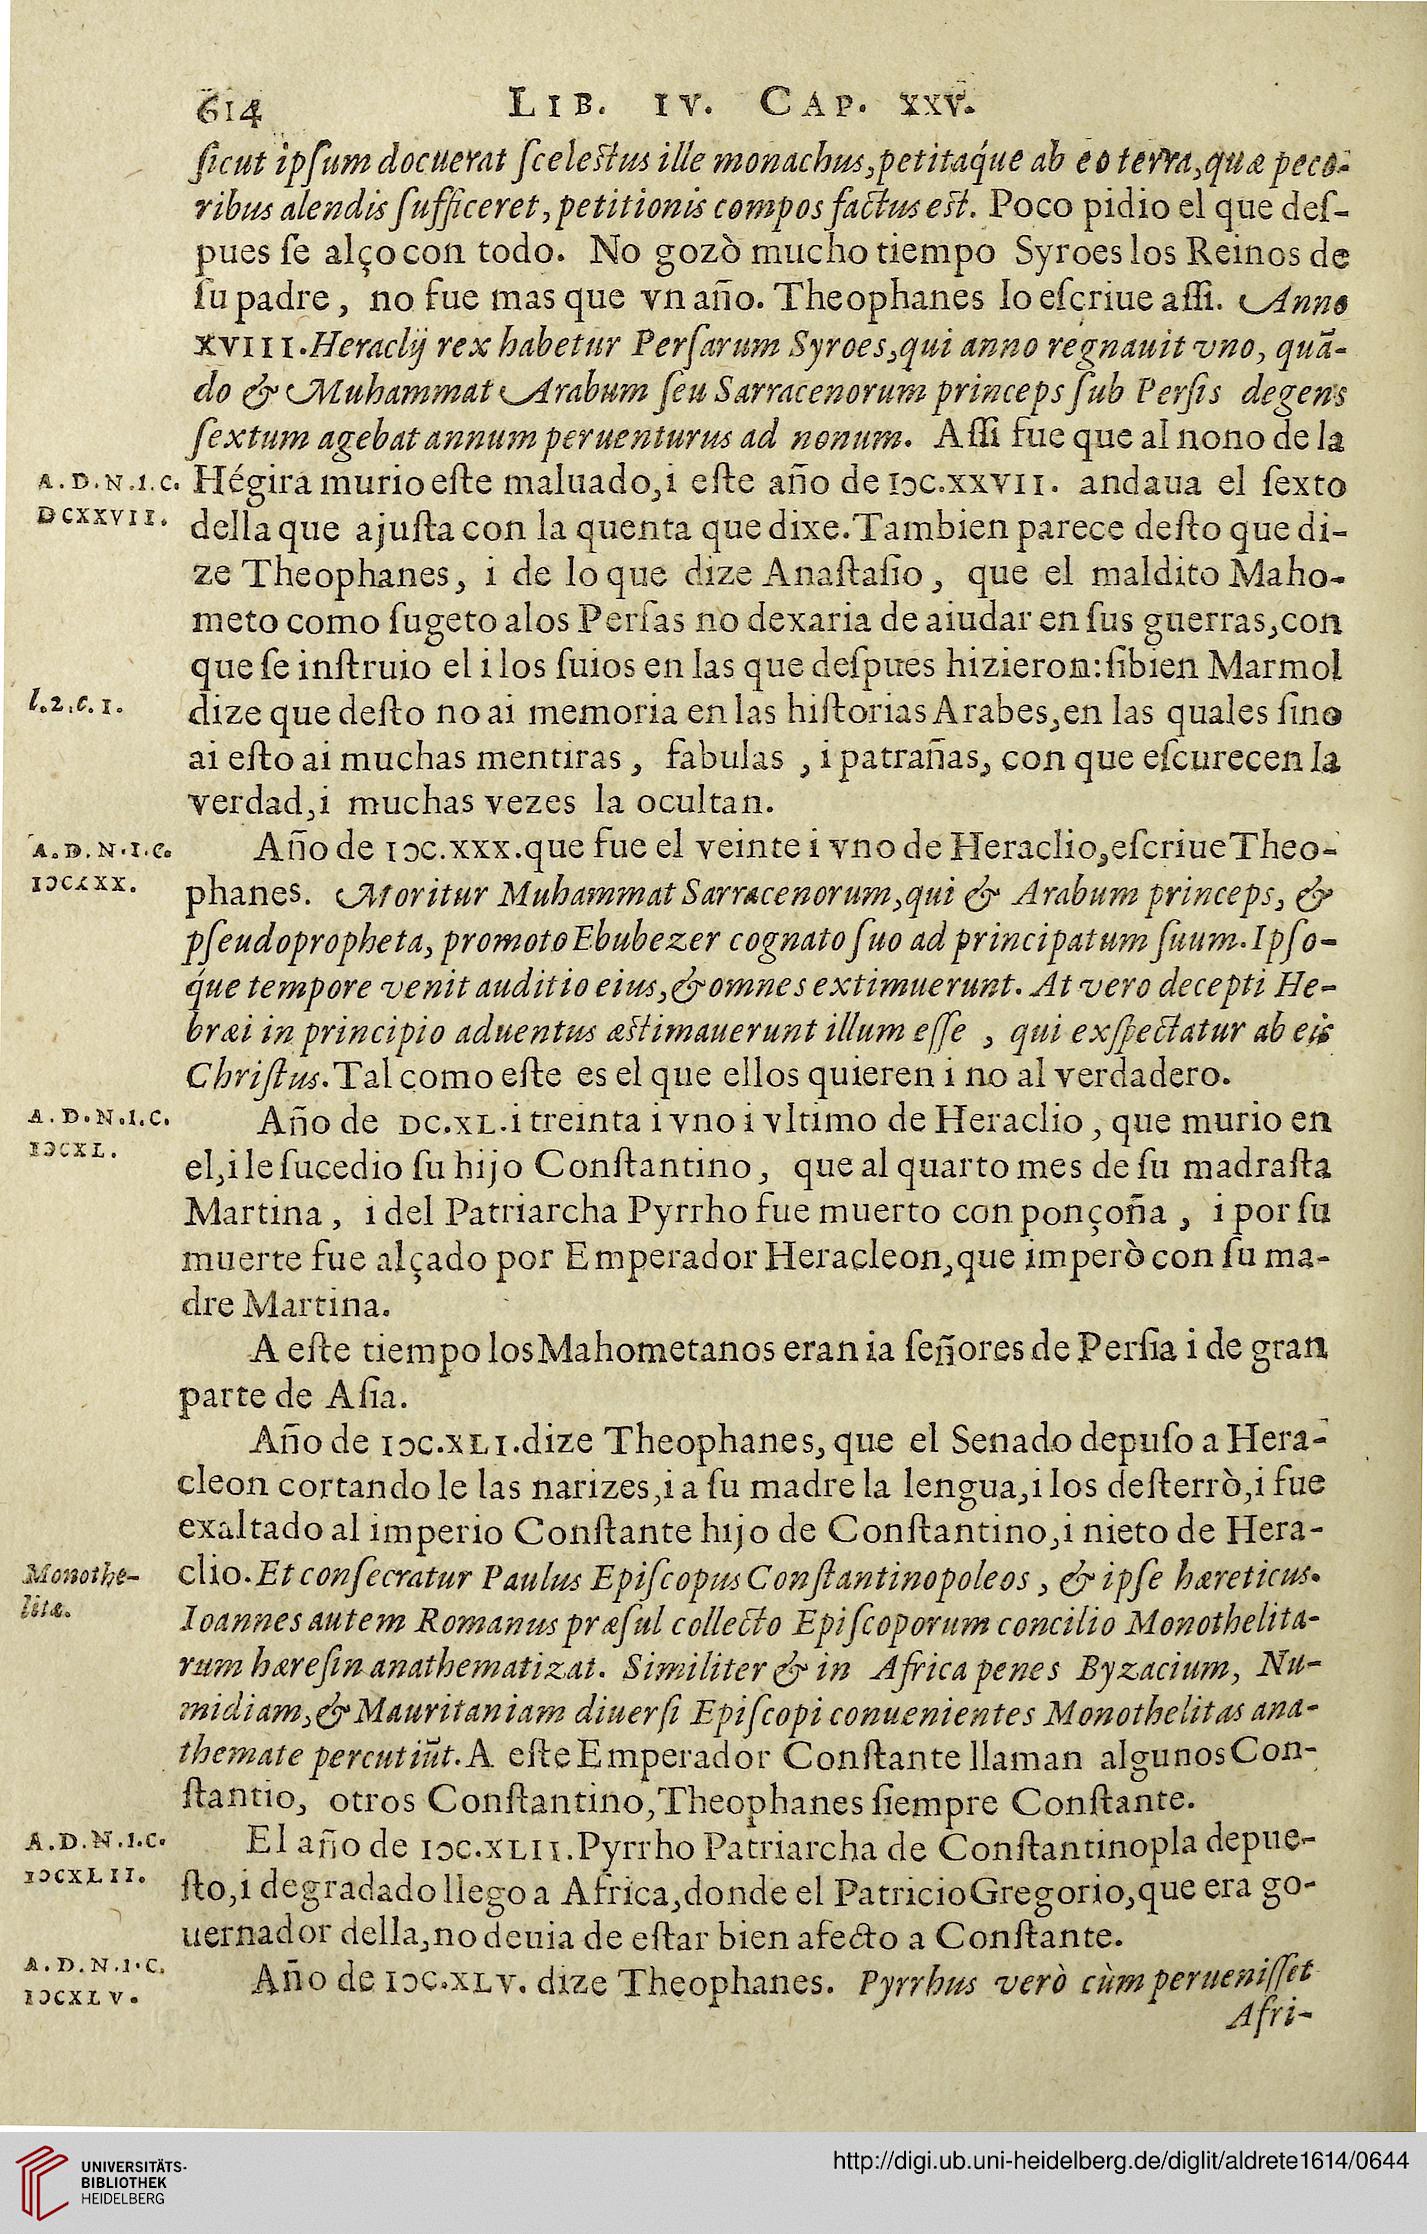 614 LIB. IV. CAP. XXV.
ſicut ipſum docuerat ſceleſtus ille monachus, petitaque ab eo terra, quæ peco-
ribus alendis ſufficeret, petitionis compos factus eſt. Poco pidio el que deſ-
pues ſe alço con todo. No gozò mucho tiempo Syroes los Reinos de
ſu padre, no fue mas que vn año. Theophanes lo eſcriue aſſi. Anno
XVIII. Heraclij rex habetur Perſarum Syroes, qui anno regnauit vno, quā-
do & Muhammat Arabum ſeu Sarracenorum princeps ſub Perſis degens
ſextum agebat annum peruenturus ad nonum. Aſſi fue que al nono de la
A.D.N.I.C. Hégira murio eſte maluado, i eſte año de IↃC.XXVII. andaua el ſexto
DCXXVII. della que ajuſta con la quenta que dixe. Tambien parece deſto que di-
ze Theophanes, i de lo que dize Anaſtaſio, que el maldito Maho-
meto como ſugeto alos Perſas no dexaria de aiudar en ſus guerras, con
que ſe inſtruio el i los ſuios en las que deſpues hizieron: ſibien Marmol
l.2.c.1. dize que deſto no ai memoria en las hiſtorias Arabes, en las quales ſino
ai eſto ai muchas mentiras, fabulas, i patrañas, con que eſcurecen la
verdad, i muchas vezes la ocultan.
A.D.N.I.C. Año de IↃC.XXX. que fue el veinte i vno de Heraclio, eſcriue Theo-
IↃCXXX. phanes. Moritur Muhammat Sarracenorum, qui & Arabum princeps, &
pſeudopropheta, promoto Ebubezer cognato ſuo ad principatum ſuum. Ipſo-
que tempore venit auditio eius, & omnes extimuerunt. At vero decepti He-
bræi in principio aduentus æſtimauerunt illum eſſe, qui exſpectatur ab eis
Chriſtus. Tal como eſte es el que ellos quieren i no al verdadero.
A.D.N.I.C. Año de DC.XL. i treinta i vno i vltimo de Heraclio, que murio en
IↃCXL. el, i le ſucedio ſu hijo Conſtantino, que al quarto mes de ſu madraſta
Martina, i del Patriarcha Pyrrho fue muerto con ponçoña, i por ſu
muerte fue alçado por Emperador Heracleon, que imperò con ſu ma-
dre Martina.
A eſte tiempo los Mahometanos eran ia ſeñores de Perſia i de gran
parte de Aſia.
Año de IↃC.XLI. dize Theophanes, que el Senado depuſo a Hera-
cleon cortando le las narizes, i a ſu madre la lengua, i los deſterrò, i fue
exaltado al imperio Conſtante hijo de Conſtantino, i nieto de Hera-
Monothe- clio. Et conſecratur Paulus Epiſcopus Conſtantinopoleos, & ipſe hæreticus.
litæ. Ioannes autem Romanus præſul collecto Epiſcoporum concilio Monothelita-
rum hæreſin anathematizat. Similiter & in Africa penes Byzacium, Nu-
midiam, & Mauritaniam diuerſi Epiſcopi conuenientes Monothelitas ana-
themate percutiūt. A eſte Emperador Conſtante llaman algunos Con-
ſtantio, otros Conſtantino, Theophanes ſiempre Conſtante.
A.D.N.I.C. El año de IↃC.XLII. Pyrrho Patriarcha de Conſtantinopla depue-
IↃCXLII. ſto, i degradado llego a Africa, donde el Patricio Gregorio, que era go-
uernador della, no deuia de eſtar bien afecto a Conſtante.
A.D.N.I.C. Año de IↃC.XLV. dize Theophanes. Pyrrhus verò cùm perueniſſet
IↃCXLV. Afri-
UNIVERSITÄTS-
BIBLIOTHEK
HEIDELBERG
http://digi.ub.uni-heidelberg.de/diglit/aldrete1614/0644